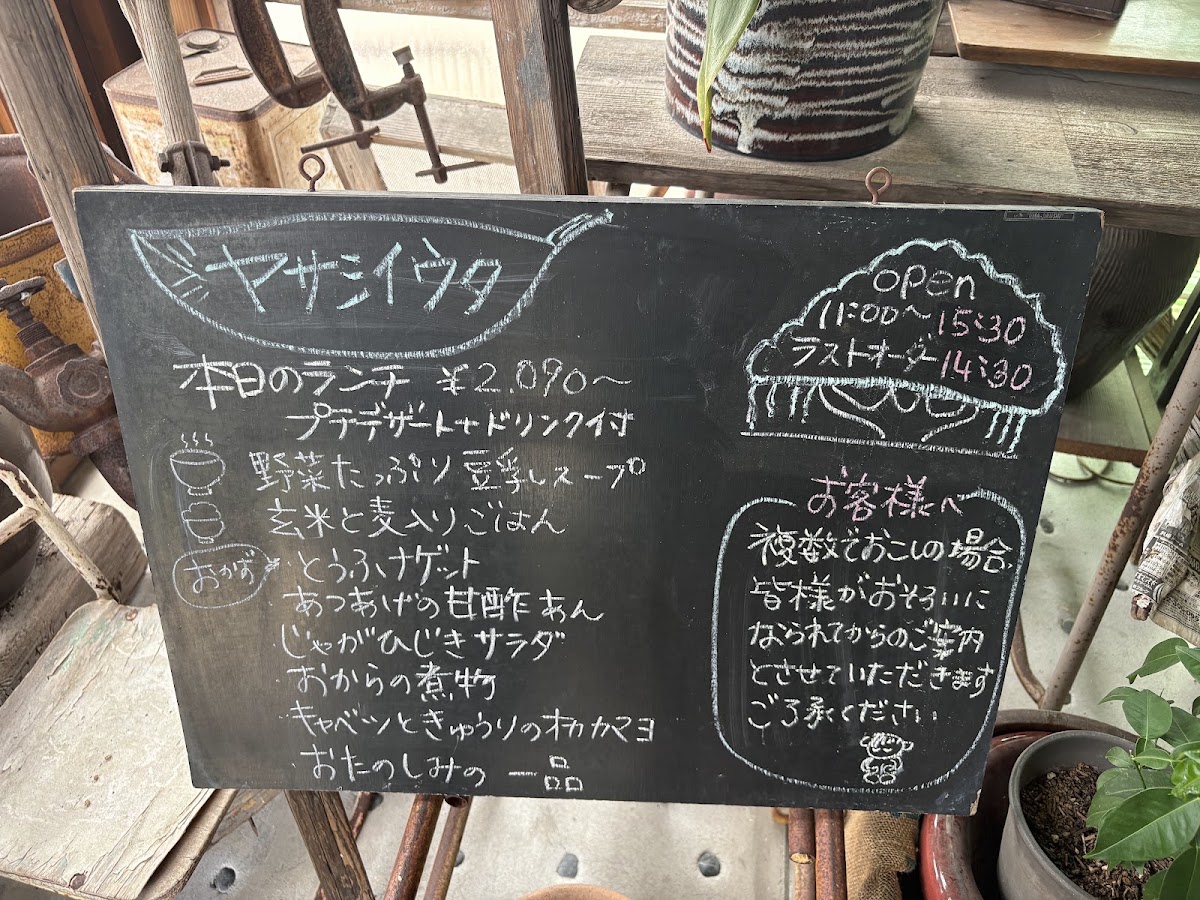 ヤサシイウタ
本日のランチ ¥2,090〜
プチデザート+ドリンク付
野菜たっぷり豆乳スープ
玄米と麦入りごはん
おかず
とうふナゲット
あつあげの甘酢あん
じゃがひじきサラダ
おからの煮物
キャベツときゅうりのオカカマヨ
おたのしみの一品
open
11:00〜15:30
ラストオーダー14:30
お客様へ
複数でおこしの場合
皆様がおそろいに
なられてからのご案内
とさせていただきます
ご了承ください